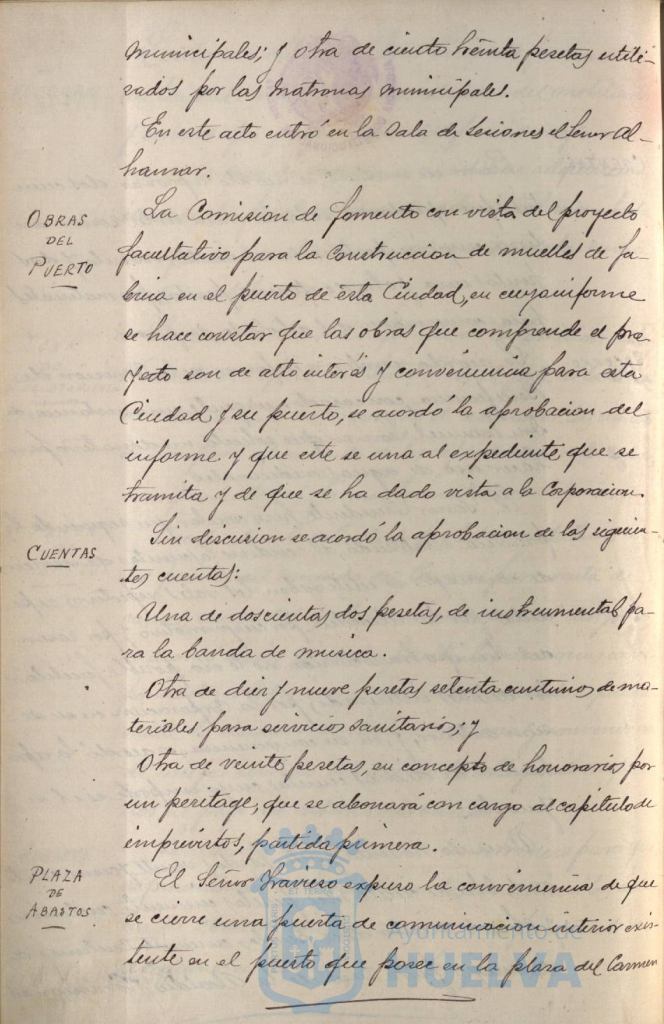 municipales; y otra de ciento treinta pesetas utili-
zados por las matronas municipales.
En este acto entró en la Sala de Sesiones el Señor Al-
hamar.
OBRAS
DEL
PUERTO
La Comision de fomento con vista del proyecto
facultativo para la construccion de muelles de fa-
brica en el puerto de esta Ciudad, en cuyo informe
se hace constar que las obras que comprende el pro-
yecto son de alto interés y conveniencia para esta
Ciudad y su puerto, se acordó la aprobacion del
informe y que este se una al expediente que se
tramita y de que se ha dado vista a la Corporacion.
CUENTAS
Sin discusion se acordó la aprobacion de las siguien-
tes cuentas:
Una de doscientas dos pesetas, de instrumental pa-
ra la banda de musica.
Otra de diez y nueve pesetas setenta centimos de ma-
teriales para servicios sanitarios; y
Otra de veinte pesetas, en concepto de honorarios por
un peritage, que se abonará con cargo al capitulo de
imprevistos, partida primera.
PLAZA
DE
ABASTOS
El Señor Travieso expuso la conveniencia de que
se cierre una puerta de comunicacion interior exis-
tente en el puerto que posee en la plaza del Carmen
Ayuntamiento de
HUELVA